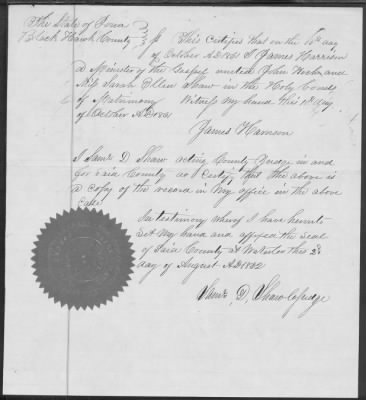 The State of Iowa
Black Hawk County } ss This certifies that on the 10th day
of October AD 1861 I James Harrison
a Minister of the Gospel united John and
Miss Sarah Ellen Shaw in the Holy Bonds
of Matrimony Witness my hand this day
of October AD 1861
James Harrison
I Saml D Shaw acting County Judge in and
for said County do Certify that the above is
a Copy of the record in my office in the above
Case
In testimony whereof I have hereunto
set my hand and affixed the seal
of said County at Waterloo this
day of August AD 1862
Saml D. Shaw Co Judge